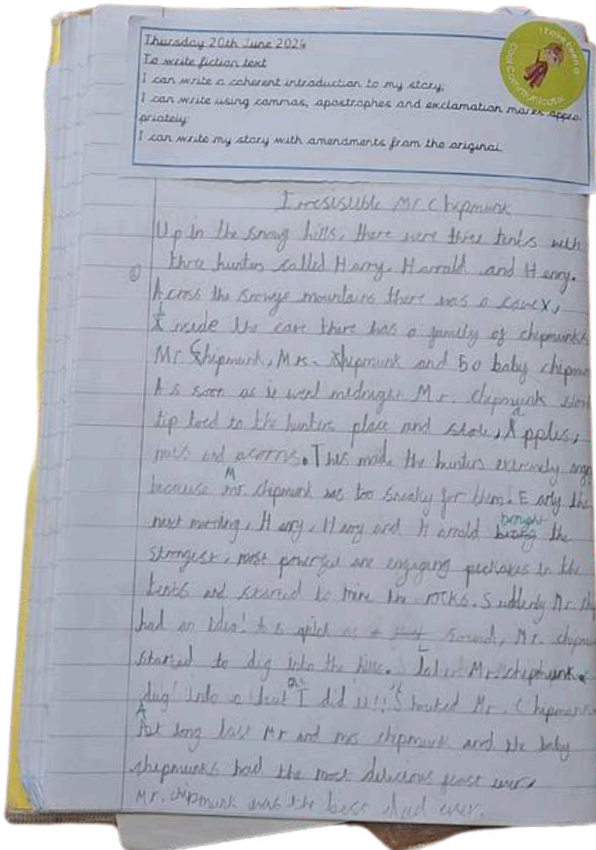 Thursday 20th June 2024
To write fiction text
I can write a coherent introduction to my story.
I can write using commas, apostrophes and exclamation marks appro
priately
I can write my story with amendments from the original
I have been a
Cool Communicator
Irresisible Mr Chipmunk
Up in the snowy hills, there were three tents with
three hunters called Harry, Harrald and Henry.
Across the snowye mountains there was a cave
Inside the cave there has a family of chipmunks
Mr. Chipmunk, Mrs. Chipmunk and 50 baby chipmu
As soon as it went midnight Mr. chipmunk
tip toed to the hunters place and stole, apples,
nuts and acorns. This made the hunters extremely
because Mr. chipmunk was too sneaky for them! Early the
next morning, Harry, Henry and Harrald brought the
strongest, most powerful are engaging in the
tents and started to mine the rocks. Suddenly Mr. chi
had an idea! As quick as a sound, Mr. chipmu
started to dig into the Mr. chipmunk
dug into a I did it!! Shouted Mr. Chipmunk
At long last Mr and mrs chipmunk and the baby
chipmunks had the most delicious feast ever,
Mr. chipmunk was the best dad ever.